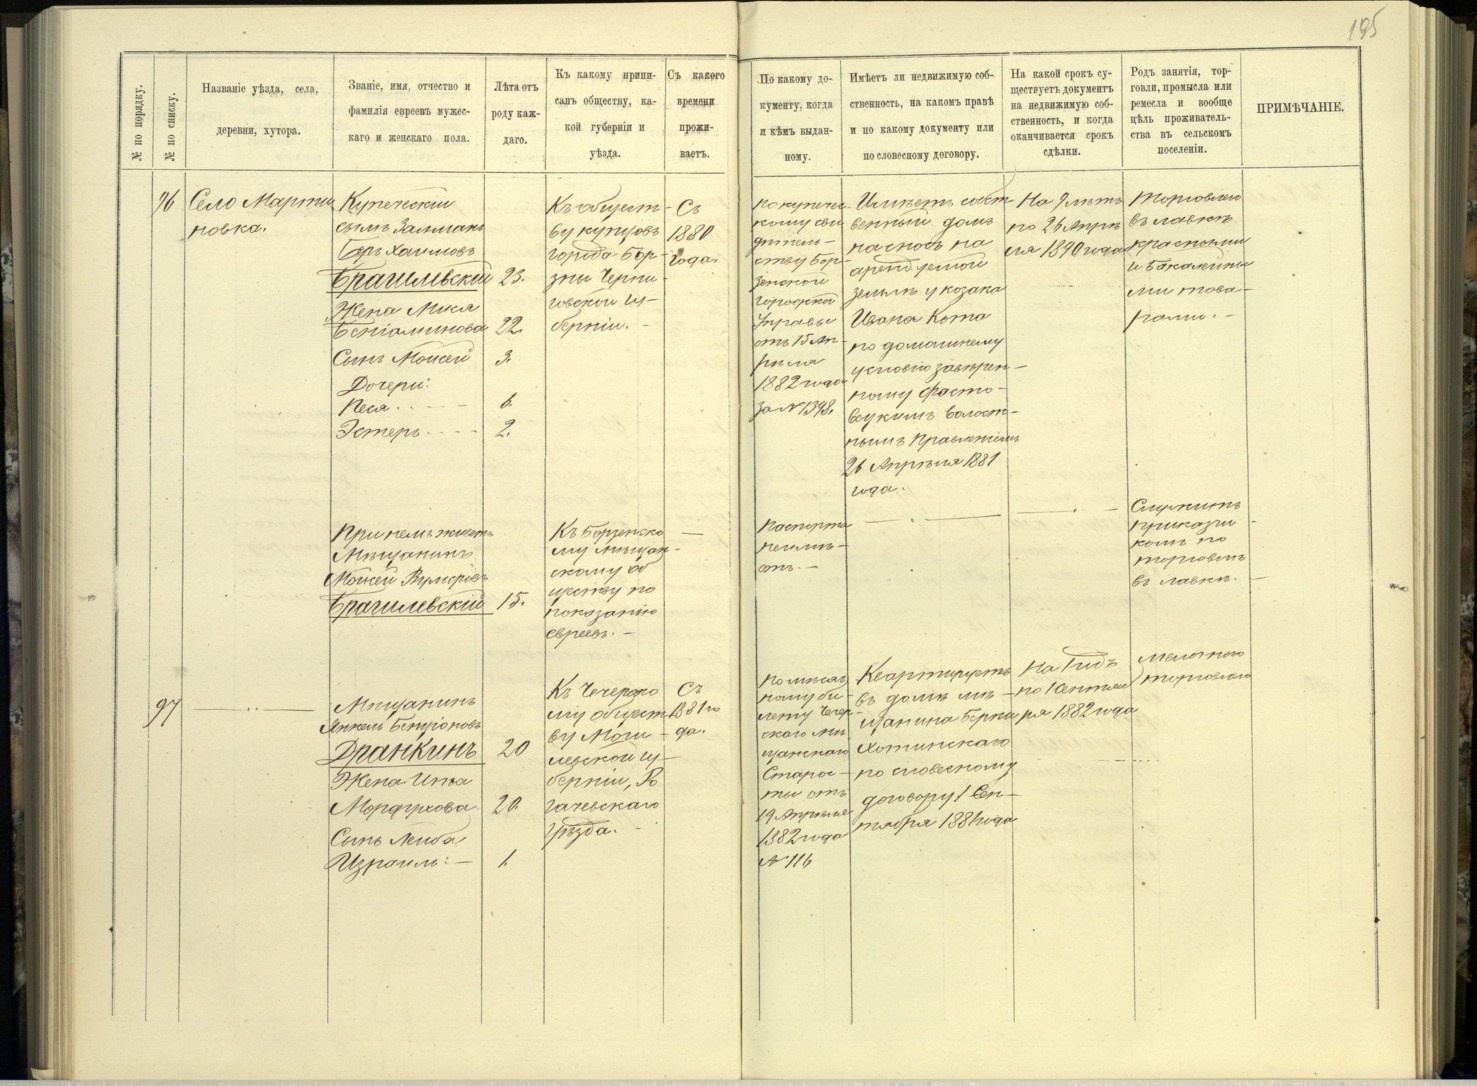 195
№ по порядку.
№ по списку.
Названіе уѣзда, села,
деревни, хутора.
Званіе, имя, отчество и
фамилія евреевъ мужес-
каго и женскаго пола.
Лѣта отъ
роду каж-
даго.
Къ какому припи-
санъ обществу, ка-
кой губерніи и
уѣзда.
Съ какого
времени
прожи-
ваетъ.
По какому до-
кументу, когда
и кѣмъ выдан-
ному.
Имѣетъ ли недвижимую соб-
ственность, на какомъ правѣ
и по какому документу или
по словесному договору.
На какой срокъ су-
ществуетъ документъ
на недвижимую соб-
ственность, и когда
оканчивается срокъ
сдѣлки.
Родъ занятія, тор-
говли, промысла или
ремесла и вообще
цѣль проживатель-
ства въ сельскомъ
поселеніи.
ПРИМѢЧАНІЕ.
96
Село Марти
новка.
Купеческій
сынъ Залманъ
Беръ Хаимовъ
Брагилевскій 23.
Жена Мися
Беніаминова 22.
Сынъ Моисей 3.
Дочери:
Песя 6.
Эстеръ 2.
Къ общест-
ву купцовъ
города Бор-
зни Черни-
говской гу-
берніи. -
Съ
1880
года.
по купечес-
кому сви
дѣтель-
ству Бор-
зенской
городской
Управы
отъ 15 Ап-
рѣля
1882 года
за № 1398.
Имѣетъ собст
венный домъ
на сносъ на
арендуемой
землѣ у козака
Ивана Кота
по домашнему
условію завѣрен-
ному Фасто-
вецкимъ Волост-
нымъ Правленіемъ
26 Апрѣля 1881
года.
На 9 лѣтъ
по 26 Апрѣ
ля 1890 года
Торговлею
въ лавкѣ
красными
и бакалейны
ми това-
рами. -
При немъ живетъ
Мѣщанинъ
Моисей
Брагилевскій 15.
Къ Борзенско
му мѣщан-
скому об
ществу по
показанію
евреевъ. -
Паспорта
не имѣ-
етъ. -
Служитъ
прикащи
комъ по
торговлѣ
въ лавкѣ. -
97
Мѣщанинъ
Янкель Бенціоновъ
Дранкинъ 20
Жена Итка
Мордухова 20.
Сынъ Лейба
Израиль: - 1
Къ Чечерско
му общест
ву Моги-
левской гу-
берніи, Ро
гачевскаго
уѣзда. -
Съ
1881 го
да.
по мѣсяч
ному би-
лету Чечер-
скаго мѣ
щанскаго
Старос-
ты отъ
19 Апрѣля
1882 года
№ 116
Квартируетъ
въ домѣ мѣ-
щанина Берки
Хотинскаго
по словесному
договору 1 Сен-
тября 1881 года
На 1 годъ
по 1 Сентяб
ря 1882 года
Мелочною
торговлею